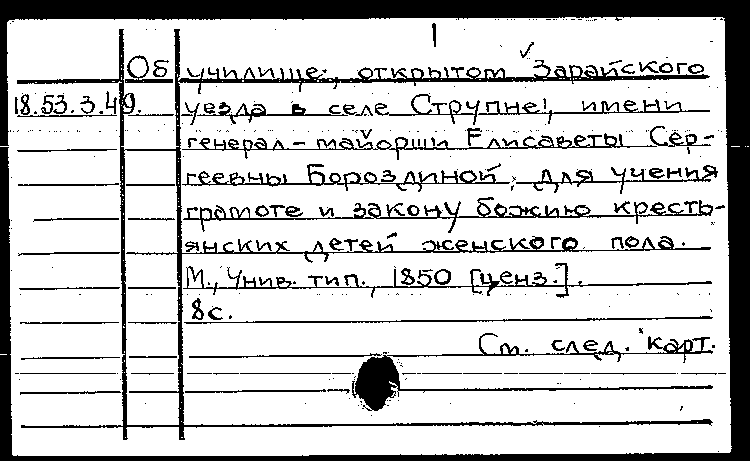 Об училище, открытом Зарайского
18.53.3.49. уезда в селе Струпне!, имени
генерал-майорши Елисаветы Сер-
геевны Бороздиной, для учения
грамоте и закону божию кресть-
янских детей женского пола.
М., Унив. тип., 1850 [ценз.].
8с.
См. след. карт.